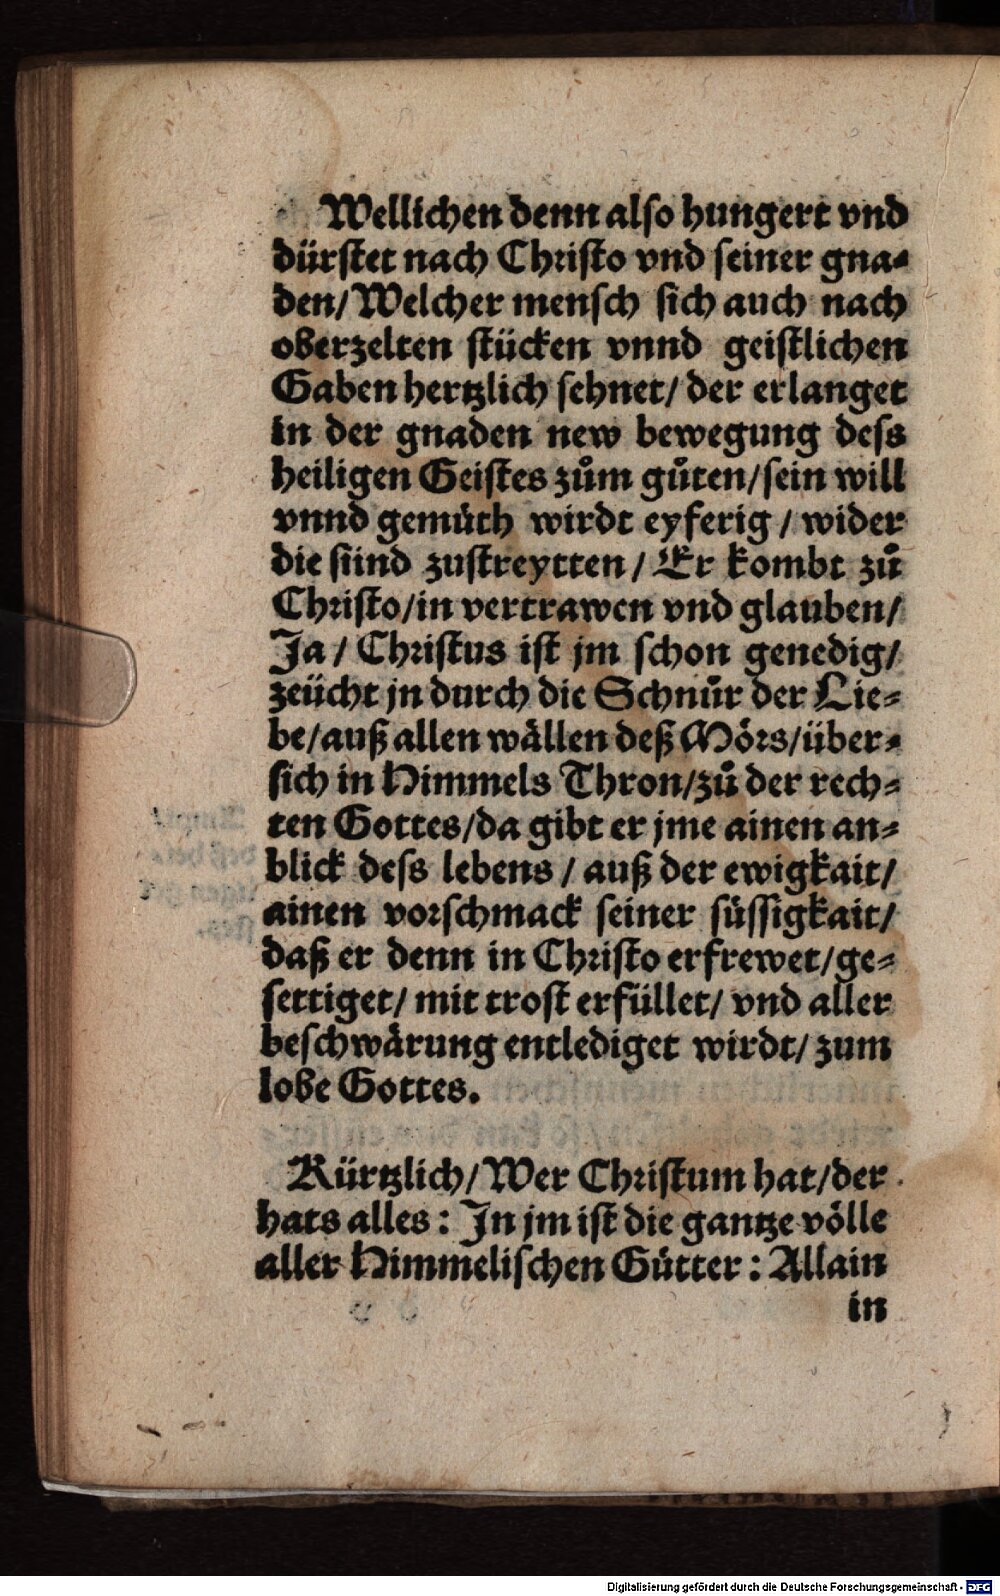 Wellichen denn also hungert vnd
dürstet nach Christo vnd seiner gna-
den/ Welcher mensch sich auch nach
oberzelten stücken vnnd geistlichen
Gaben hertzlich sehnet/ der erlanget
in der gnaden new bewegung dess
heiligen Geistes zům gůten/ sein will
vnnd gemüth wirdt eyferig / wider
die sünd zustreytten / Er kombt zů
Christo/ in vertrawen vnd glauben/
Ja / Christus ist jm schon genedig/
zeücht jn durch die Schnůr der Lie-
be/ auß allen wällen deß Mörs/ über-
sich in Himmels Thron/ zů der rech-
ten Gottes/ da gibt er jme ainen an-
blick dess lebens / auß der ewigkait/
ainen vorschmack seiner süssigkait/
daß er denn in Christo erfrewet/ ge-
settiget/ mit trost erfüllet/ vnd aller
beschwärung entlediget wirdt/ zum
lobe Gottes.
Kürtzlich/ Wer Christum hat/ der
hats alles : In jm ist die gantze völle
aller Himmelischen Gütter : Allain
in
Digitalisierung gefördert durch die Deutsche Forschungsgemeinschaft - DFG